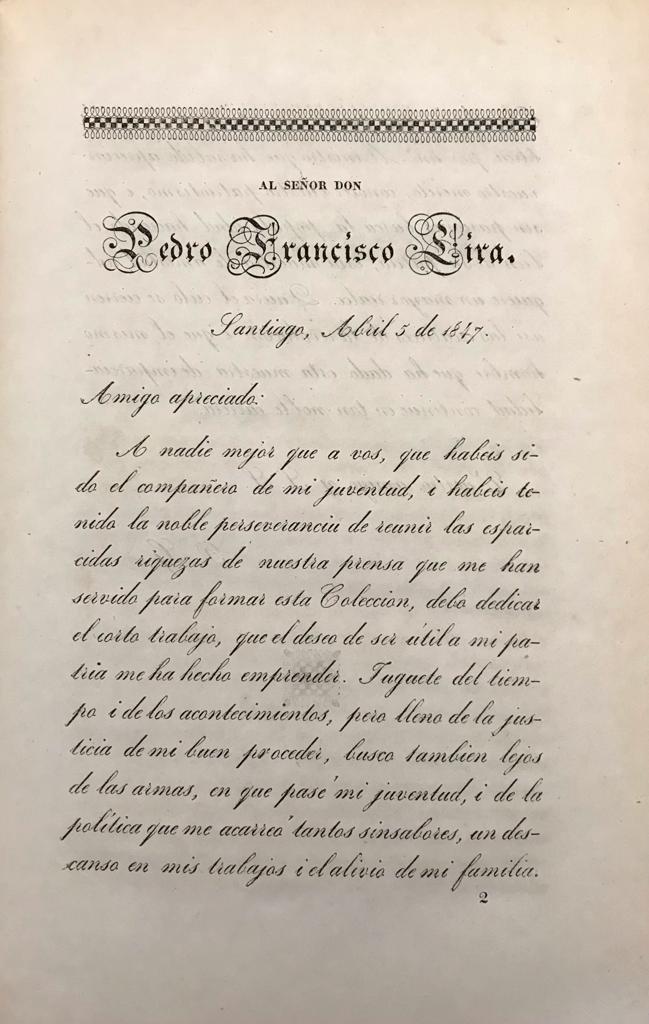 AL SEÑOR DON
Pedro Francisco Lira.
Santiago, Abril 5 de 1847.
Amigo apreciado:
A nadie mejor que a vos, que habeis si-
do el compañero de mi juventud, i habeis te-
nido la noble perseverancia de reunir las espar-
cidas riquezas de nuestra prensa que me han
servido para formar esta Coleccion, debo dedicar
el corto trabajo, que el deseo de ser útil a mi pa-
tria me ha hecho emprender. Juguete del tiem-
po i de los acontecimientos, pero lleno de la jus-
ticia de mi buen proceder, busco tambien lejos
de las armas, en que pasé mi juventud, i de la
política que me acarreó tantos sinsabores, un des-
canso en mis trabajos i el alivio de mi familia.
2